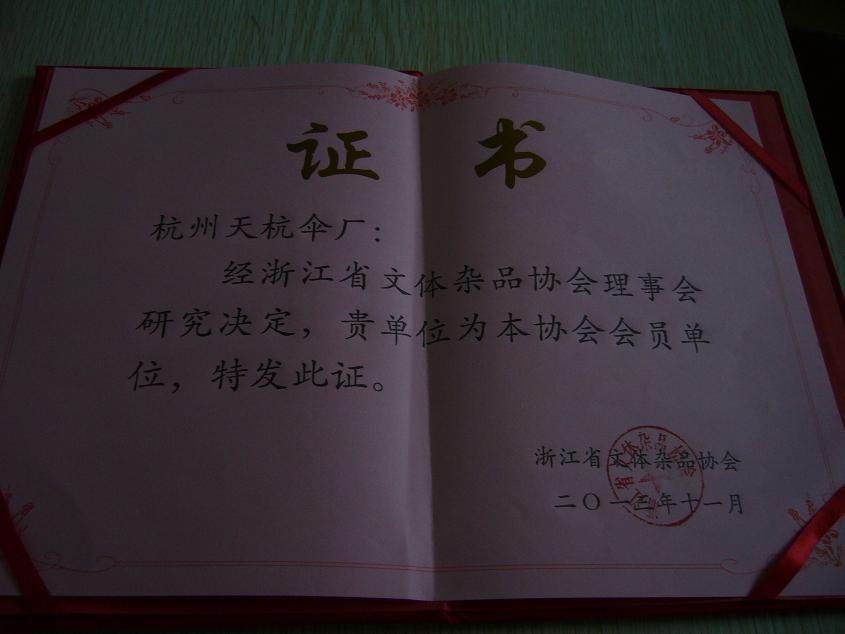 证书
杭州天杭伞厂：
经浙江省文体杂品协会理事会
研究决定，贵单位为本协会会员单
位，特发此证。
浙江省文体杂品协会
二〇一三年十一月